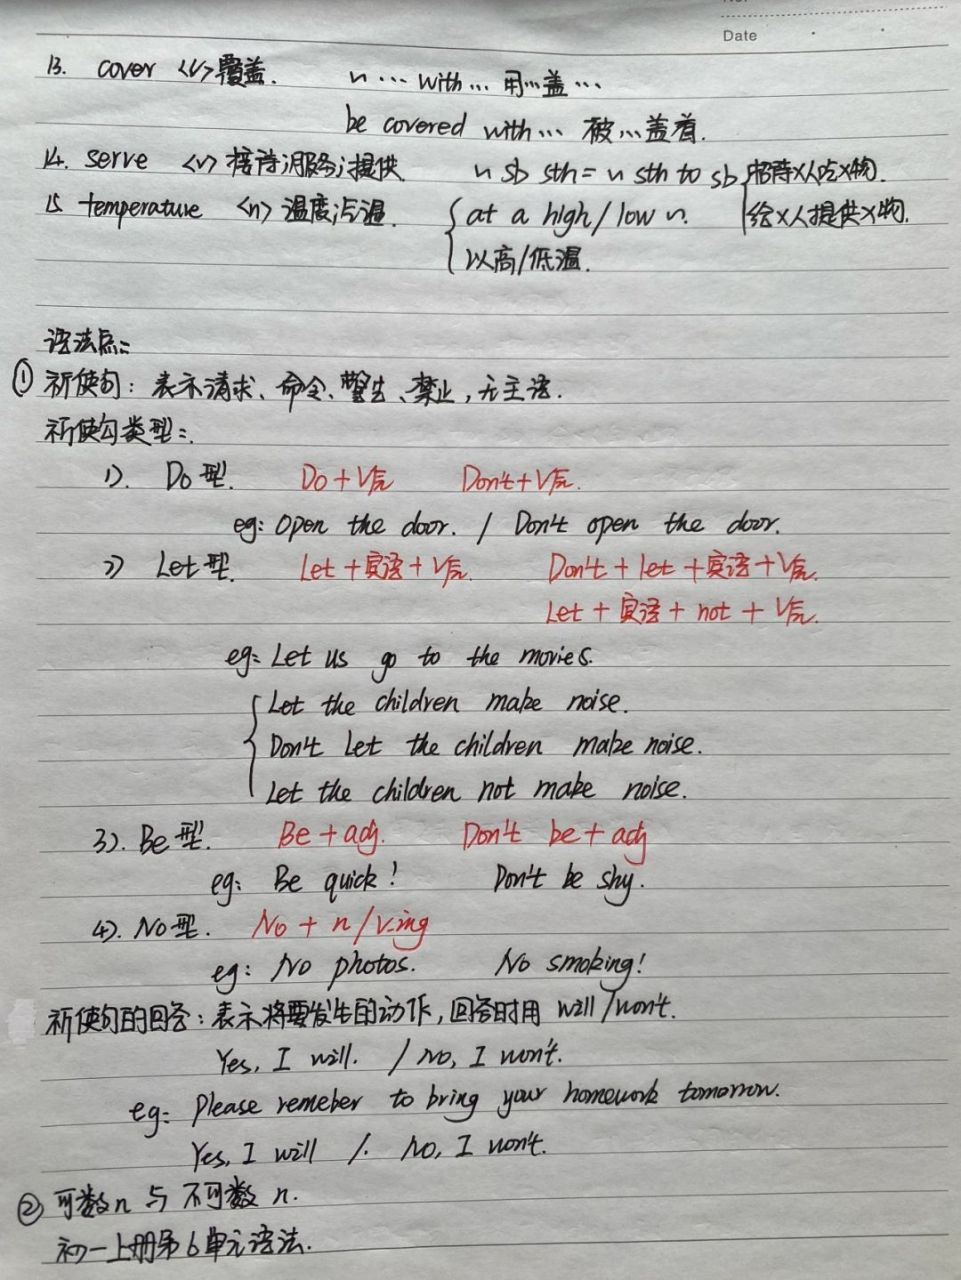 Date
13. cover <v> 覆盖. ~ … with … 用…盖…
be covered with … 被…盖着.
14. serve <v> 接待;服务;提供 ~ sb sth = ~ sth to sb 招待X人吃X物.
15 temperature <n> 温度;气温. at a high/low ~. 给X人提供X物.
以高/低温.
语法点:
① 祈使句: 表示请求、命令、警告、禁止, 无主语.
祈使句类型:
1). Do型. Do + V原 Don't + V原.
eg: Open the door. / Don't open the door.
2) Let型. Let + 宾语 + V原. Don't + let + 宾语 + V原.
Let + 宾语 + not + V原.
eg: Let us go to the movies.
Let the children make noise.
Don't let the children make noise.
Let the children not make noise.
3). Be型. Be + adj. Don't be + adj
eg: Be quick! Don't be shy.
4). No型. No + n / v-ing
eg: No photos. No smoking!
祈使句的回答: 表示将要发生的动作, 回答时用 will / won't.
Yes, I will. / No, I won't.
eg: Please remeber to bring your homework tomorrow.
Yes, I will /. No, I won't.
② 可数n 与 不可数 n.
初一上册第6单元语法.